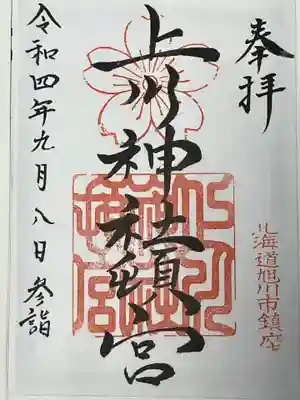 奉拝
北海道旭川市鎮座
上川神社頓宮
令和四年九月八日参詣